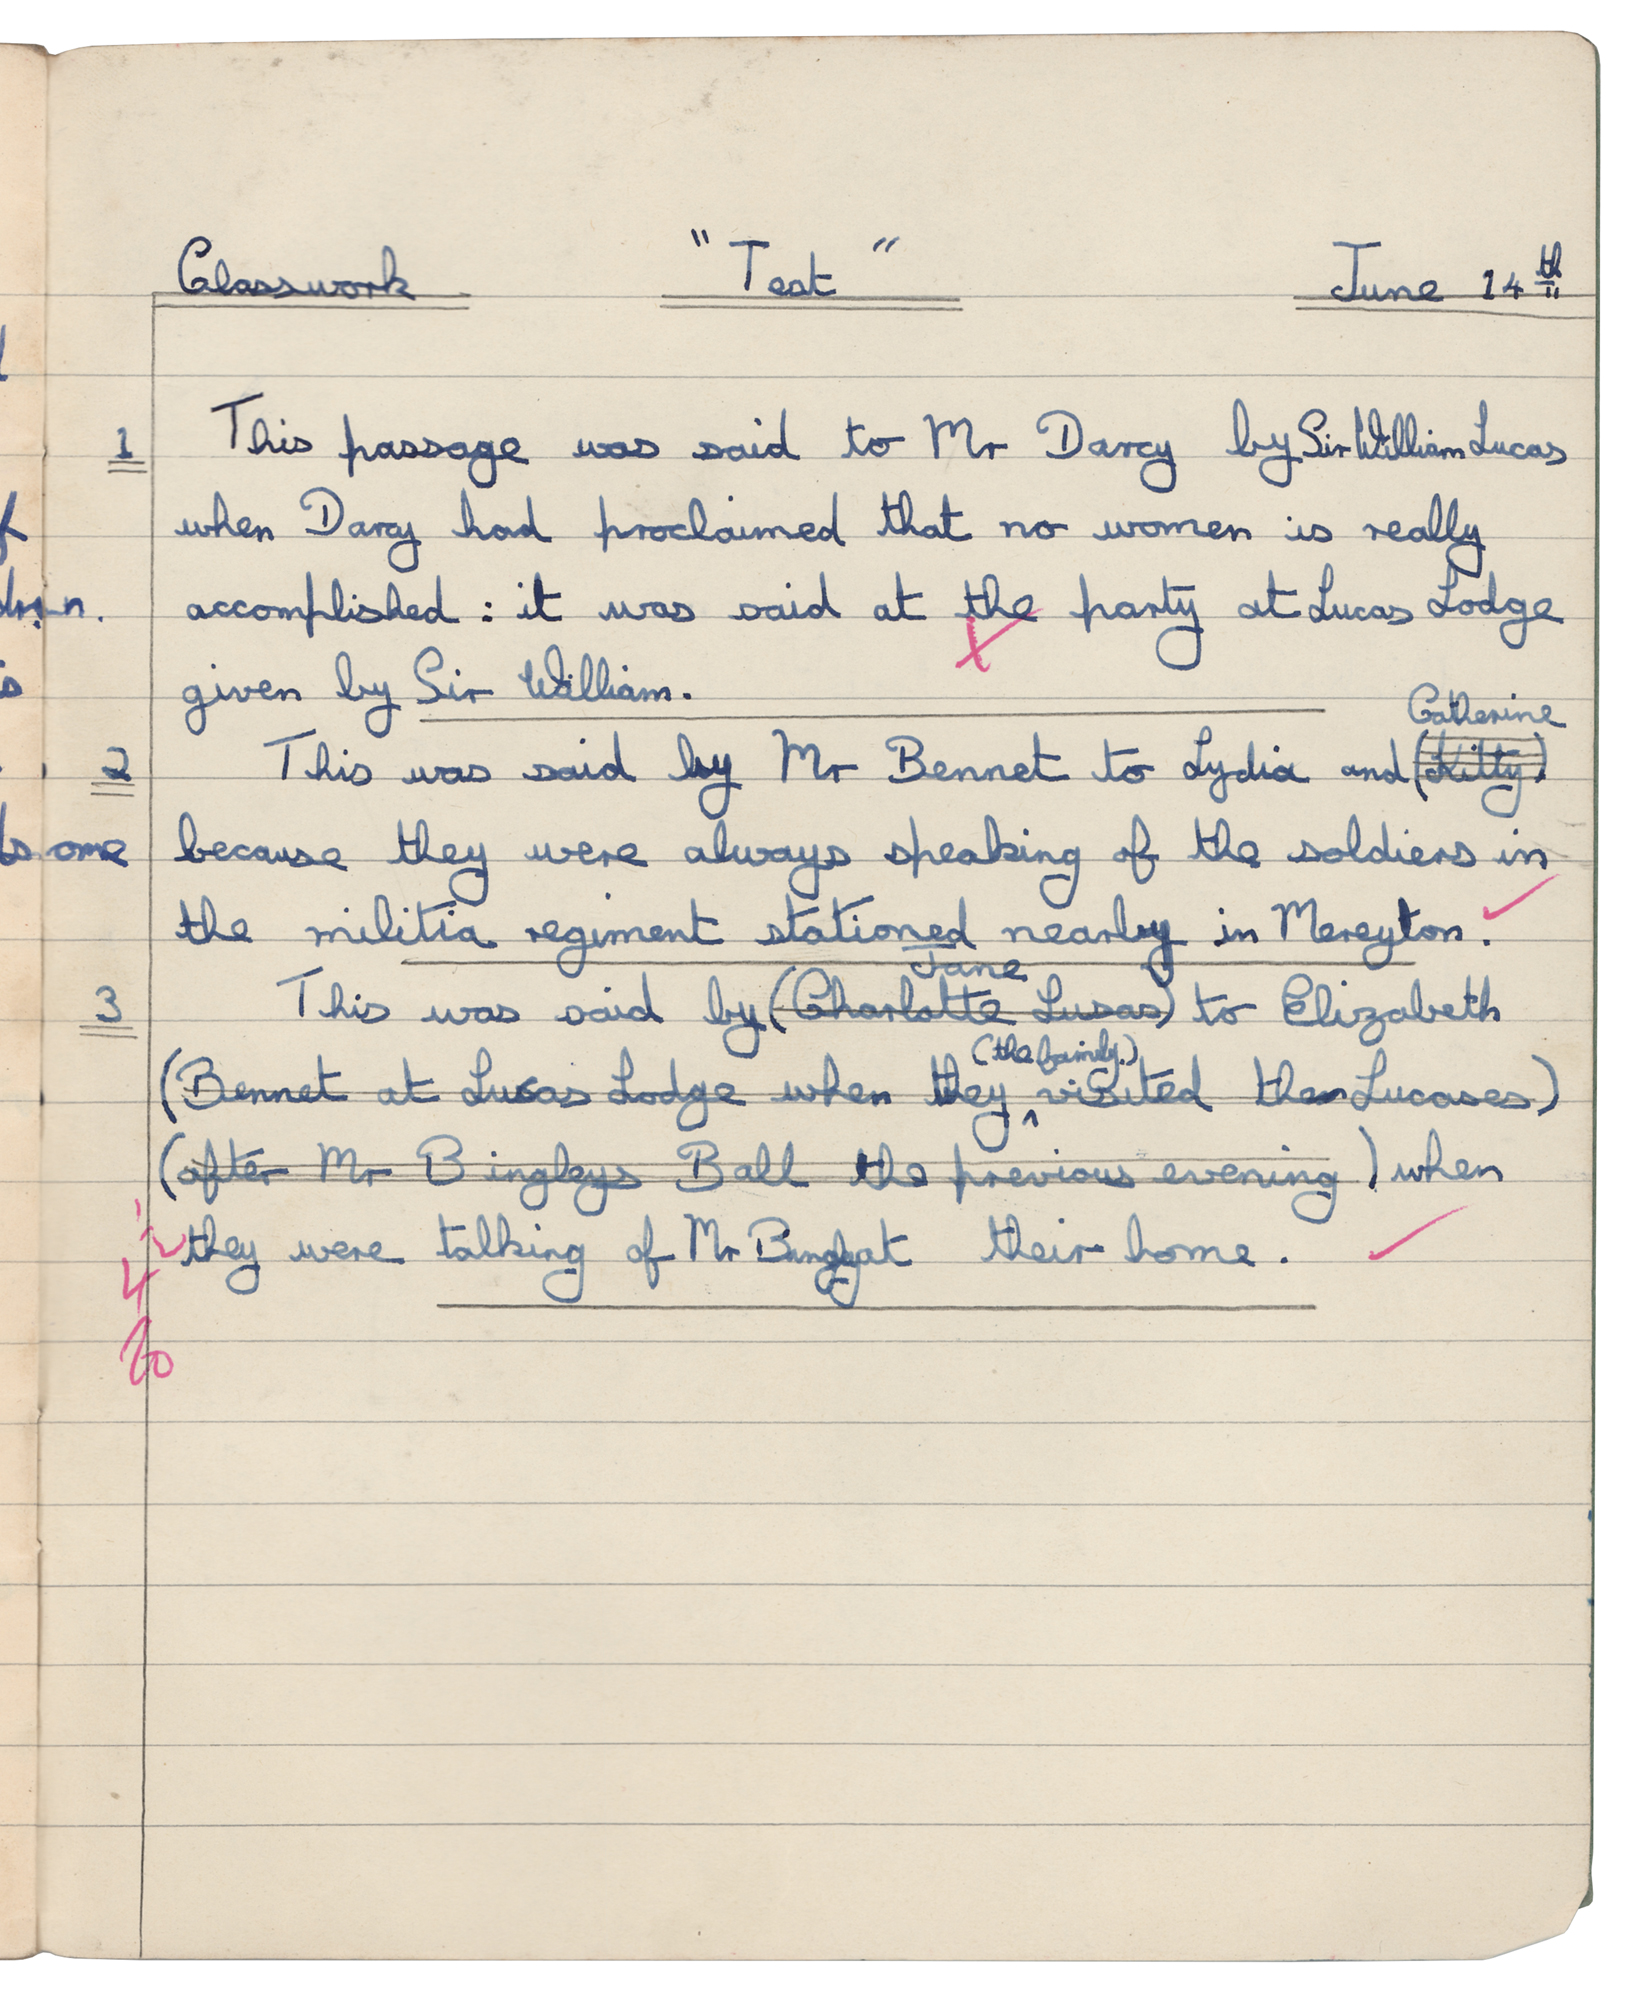 Classwork "Test" June 14th
1 This passage was said to Mr Darcy by Sir William Lucas
when Darcy had proclaimed that no women is really
accomplished : it was said at the party at Lucas Lodge
given by Sir William.
Catherine
2 This was said by Mr Bennet to Lydia and (Kitty)
because they were always speaking of the soldiers in
the militia regiment stationed nearby in Mereyton.
Jane
3 This was said by (Charlotte Lusas) to Elizabeth
(the family.)
(Bennet at Lucas Lodge when they visited the Lucases)
(after Mr Bingleys Ball the previous evening) when
they were talking of Mr Bingley at their home.
4
some